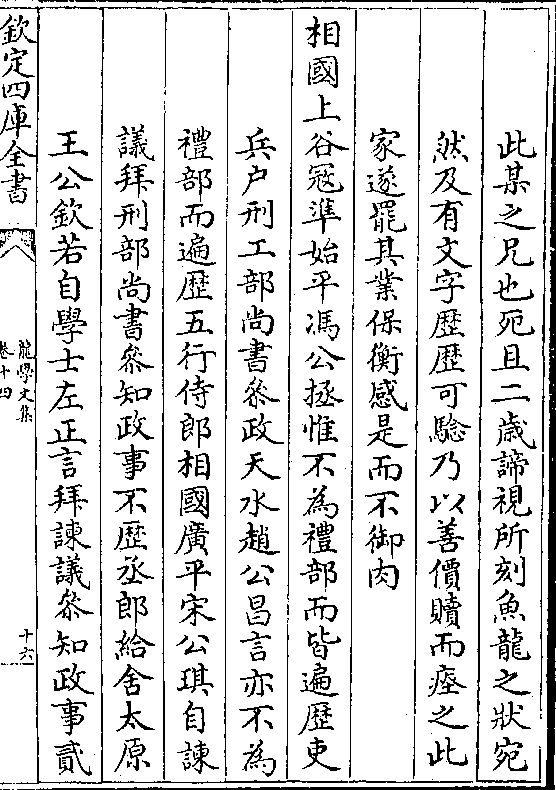 此某之兄也死且二歳諦視所刻魚龍之狀宛
然及有文字歴歴可驗乃以善價贖而瘞之此
家遂罷其業保衡感是而不御肉
相國上谷冦準始平馮公拯惟不為禮部而皆遍歴吏
兵户刑工部尚書叅政天水趙公昌言亦不為
禮部而遍歴五行侍郎相國廣平宋公琪自諫
議拜刑部尚書叅知政事不歴丞郎給舍太原
王公欽若自學士左正言拜諫議叅知政事貳
欽定四庫全書
龍學文集
卷十四
十六